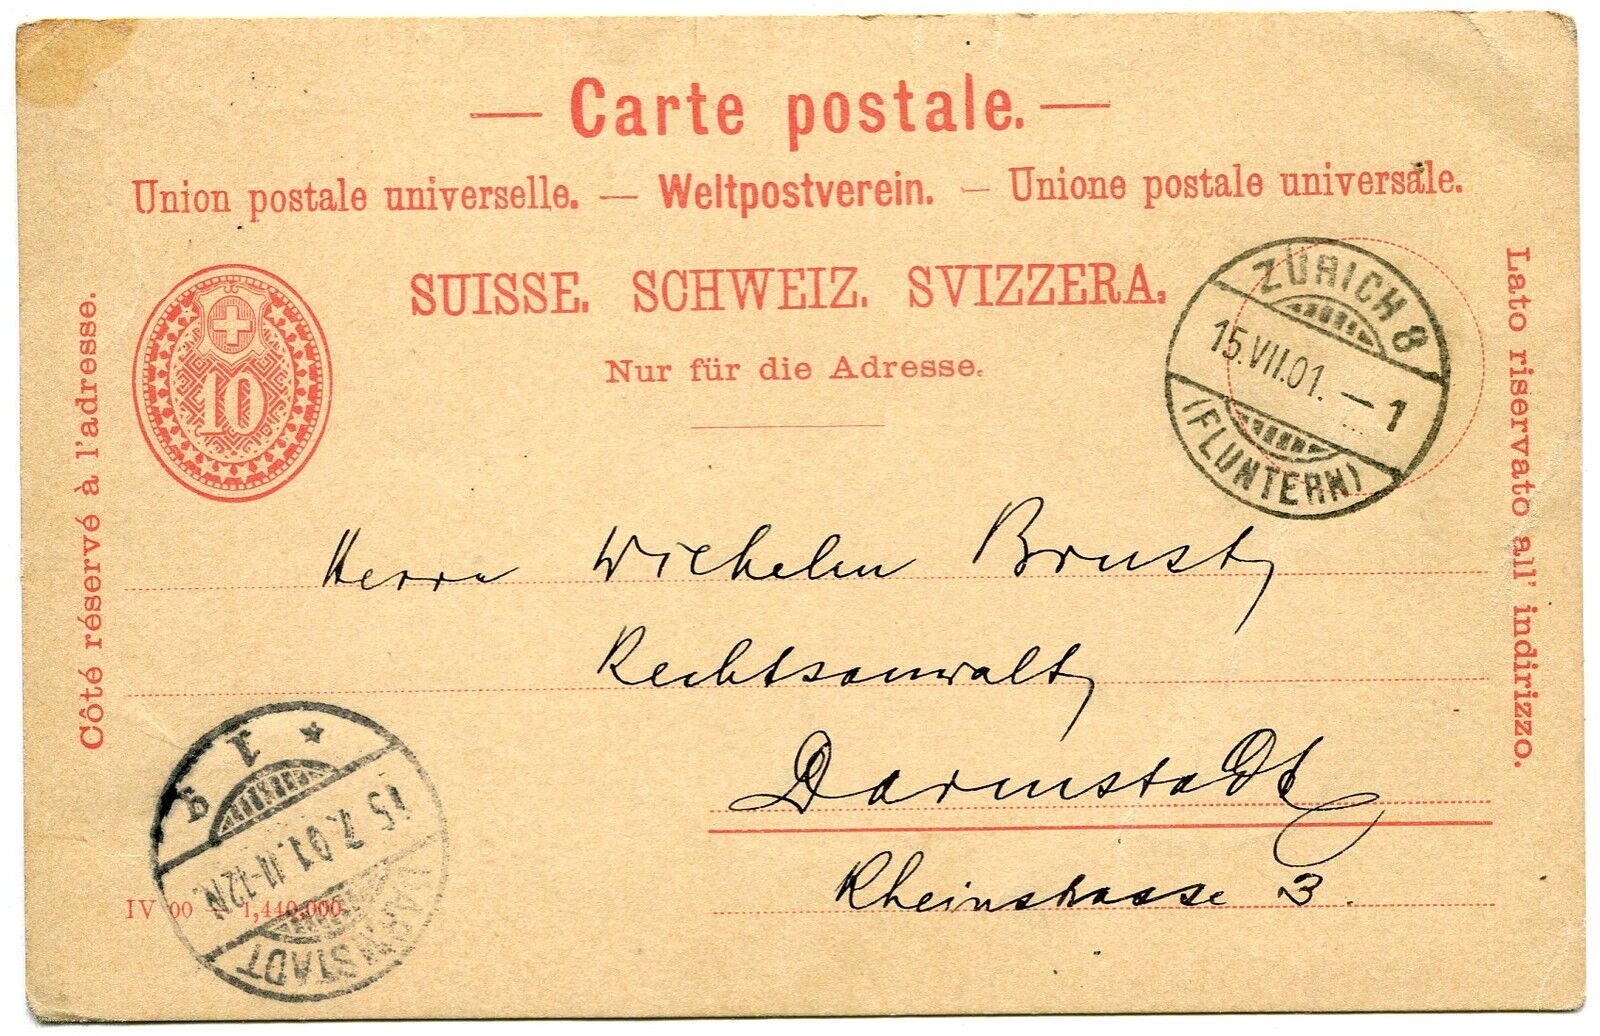 — Carte postale. —
Union postale universelle. — Weltpostverein. — Unione postale universale.
SUISSE. SCHWEIZ. SVIZZERA.
Nur für die Adresse.
Côté réservé à l'adresse.
Lato riservato all' indirizzo.
10
ZÜRICH 8
15.VII.01. — 1
(FLUNTERN)
Herrn Wilhelm Brust,
Rechtsanwalt,
Darmstadt
Rheinstrasse 3.
* 1
15.7.01. 11-12N.
DARMSTADT
IV 00 — 1,440,000